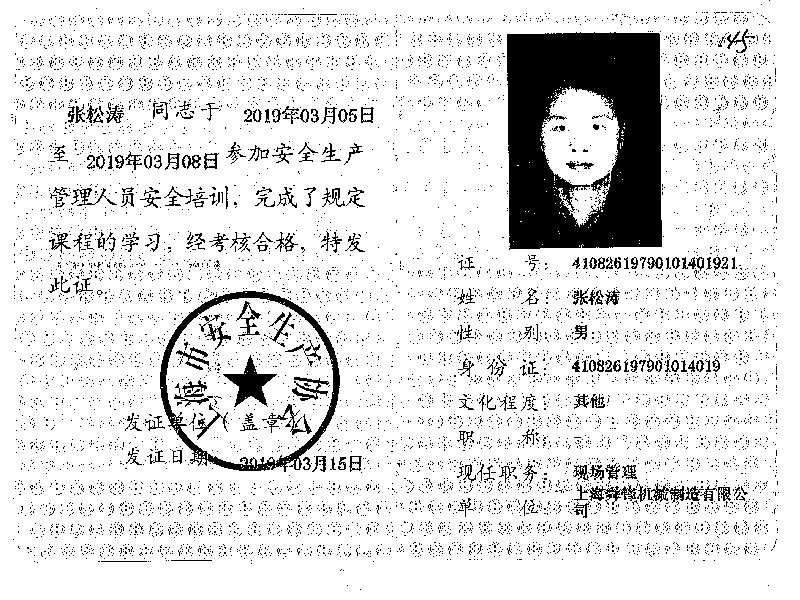 张松涛 同志于 2019年03月05日
至 2019年03月08日参加安全生产
管理人员安全培训，完成了规定
课程的学习，经考核合格，特发
此证。
上海市安全生产协会
发证单位（盖章）
发证日期：2019年03月15日
145
证 号：41082619790101401921
姓 名：张松涛
性 别：男
身 份 证：410826197901014019
文化程度：其他
职 称：
现任职务：现场管理
单 位：上海舜锋机械制造有限公
司